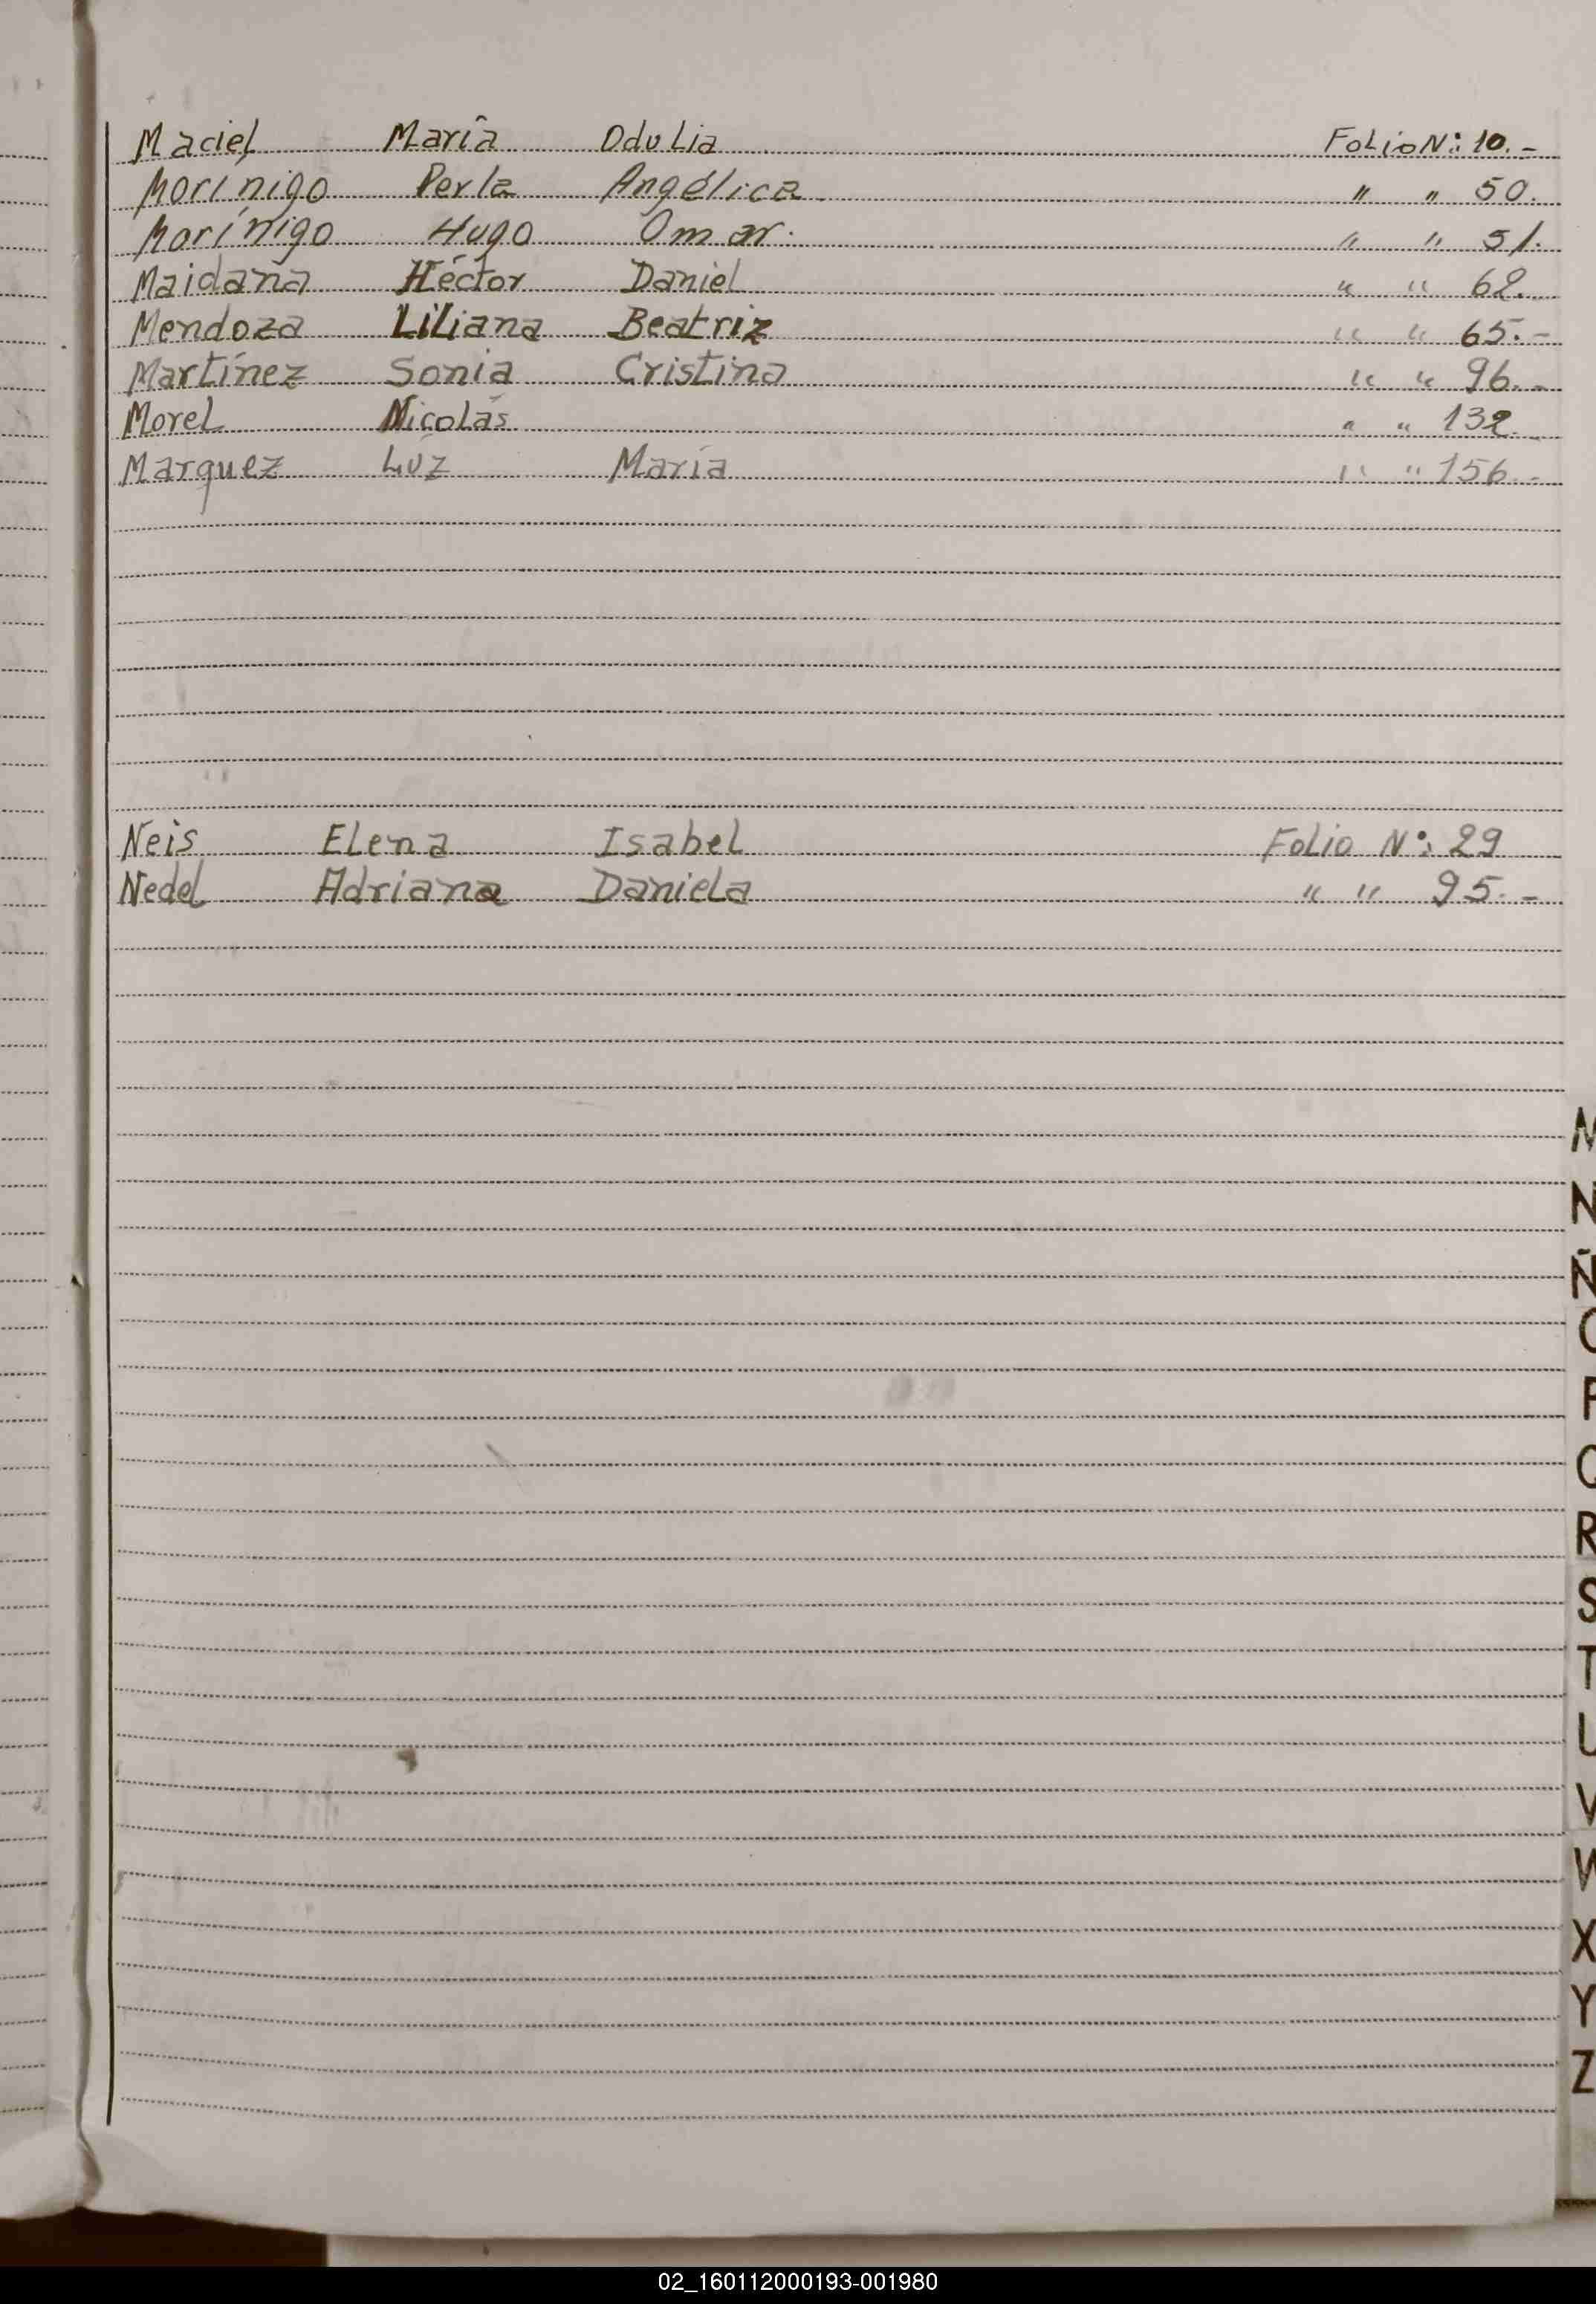 Maciel María Odulia Folio Nº: 10.-
Morínigo Perla Angélica " " 50.
Morínigo Hugo Omar. " " 51.
Maidana Héctor Daniel " " 62.-
Mendoza Liliana Beatriz " " 65.-
Martínez Sonia Cristina " " 96.-
Morel Nicolás " " 132.-
Marquez Luz María " " 156.-
Neis Elena Isabel Folio Nº: 29
Nedel Adriana Daniela " " 95.-
M
N
Ñ
O
P
Q
R
S
T
U
V
W
X
Y
Z
02_160112000193-001980